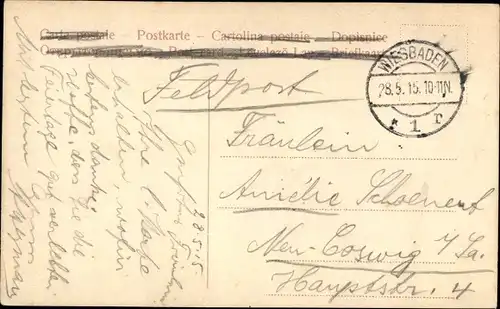 Carta postale Postkarte – Cartolina postale – Dopisnice
Post card Levelező-Lap Briefkaart
WIESBADEN
28.5.15. 10-11N.
* 1 r
Feldpost
Fräulein
Amélie Schoenert
Neu-Coswig i/Sa.
Hauptstr. 4
28.5.15
Ihre l. Karte
erhalten, wofür
bestens danke.
hoffe, dass Sie die
Feiertage gut verlebt.
Mit besten